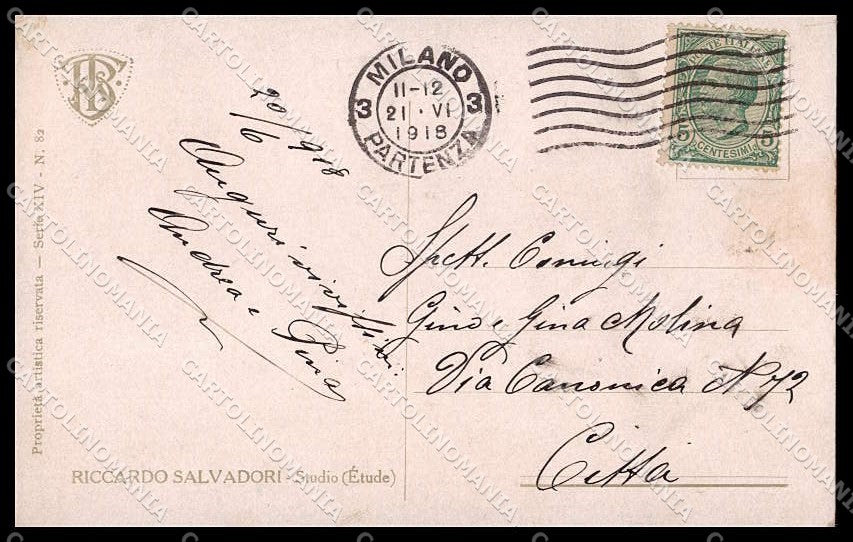 Proprietà artistica riservata — Serie XIV - N. 82
20/6 918
Auguri vivissimi
Andrea e Pina
RICCARDO SALVADORI - Studio (Étude)
MILANO
3 11-12 3
21 · VI
1918
PARTENZA
POSTE ITALIANE
5 5
CENTESIMI
Spett. Coniugi
Gino e Gina Molina
Via Canonica N 72
Città
CARTOLINOMANIA